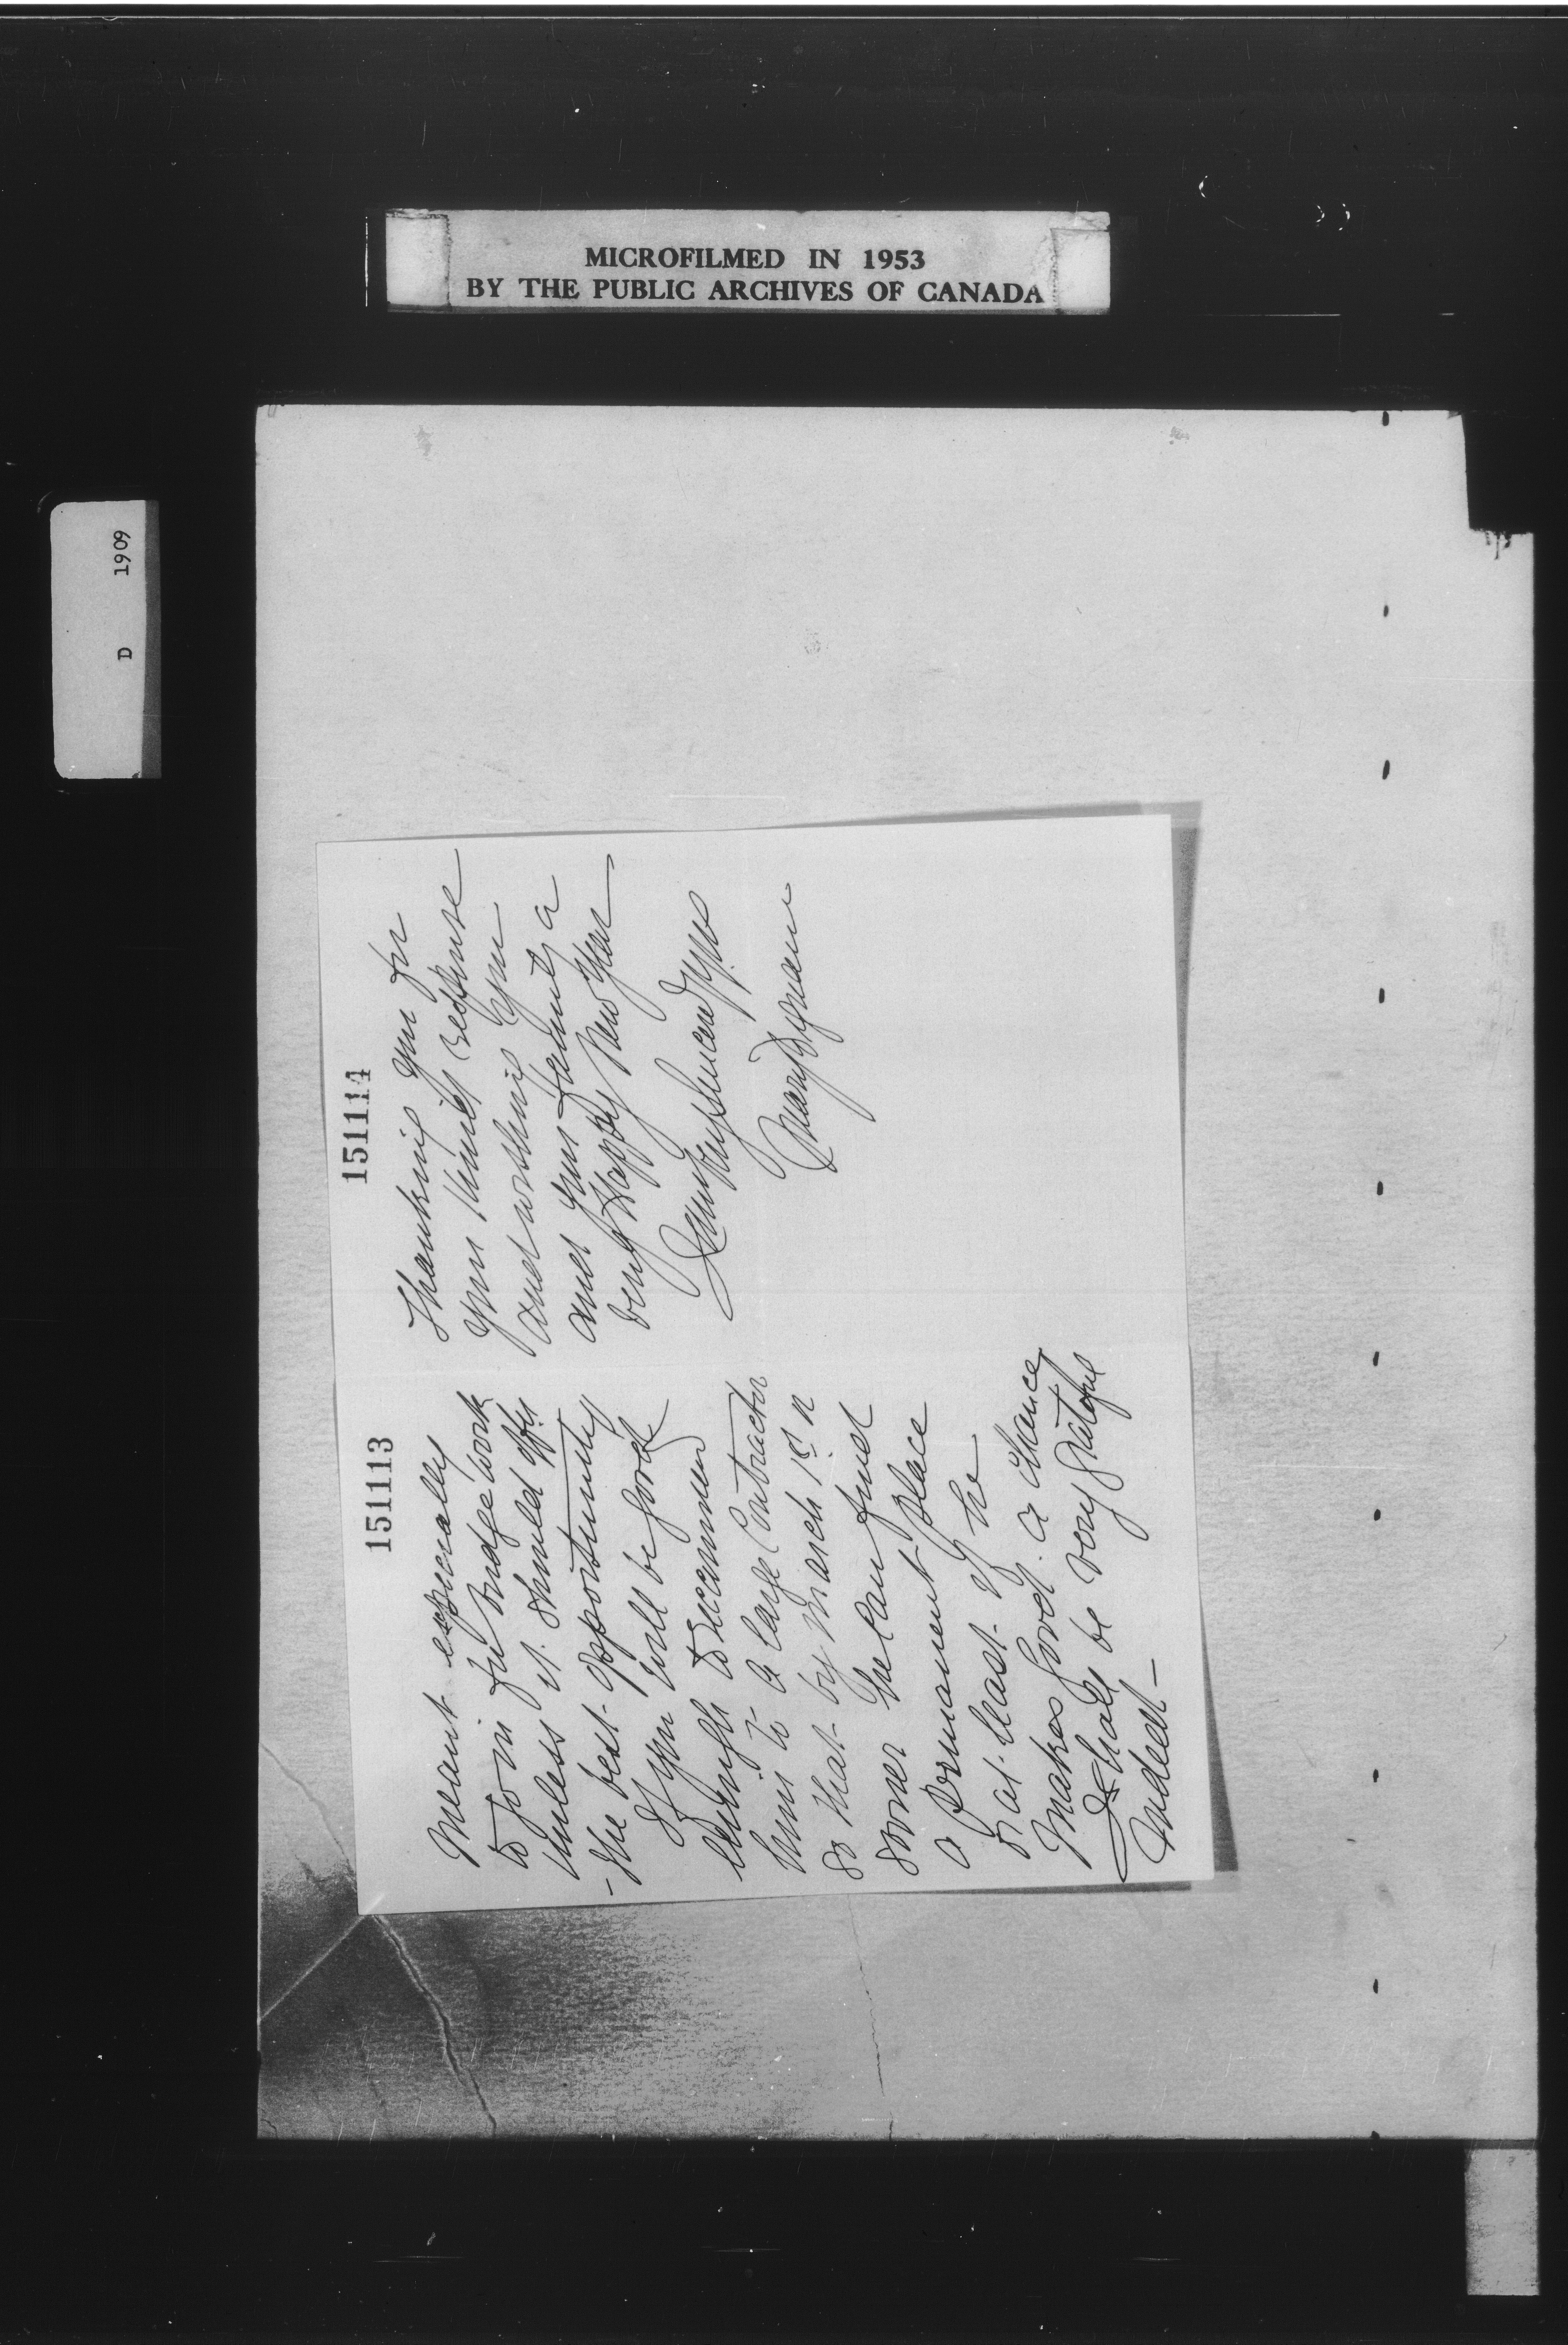 MICROFILMED IN 1953
BY THE PUBLIC ARCHIVES OF CANADA
D 1909
151113
meant especially
to go in for bridge work
unless it should offer
the best opportunity
If you will be good
enough to recommend
him to a large Contractor
so that by March 1st or
sooner he can find
a permanent place
or at least if he
makes good a chance
I shall be very grateful
indeed —
151114
Thanking you for
your kind response
and wishing you
and your family a
very Happy New Year
very sincerely yrs
Mary Dignam